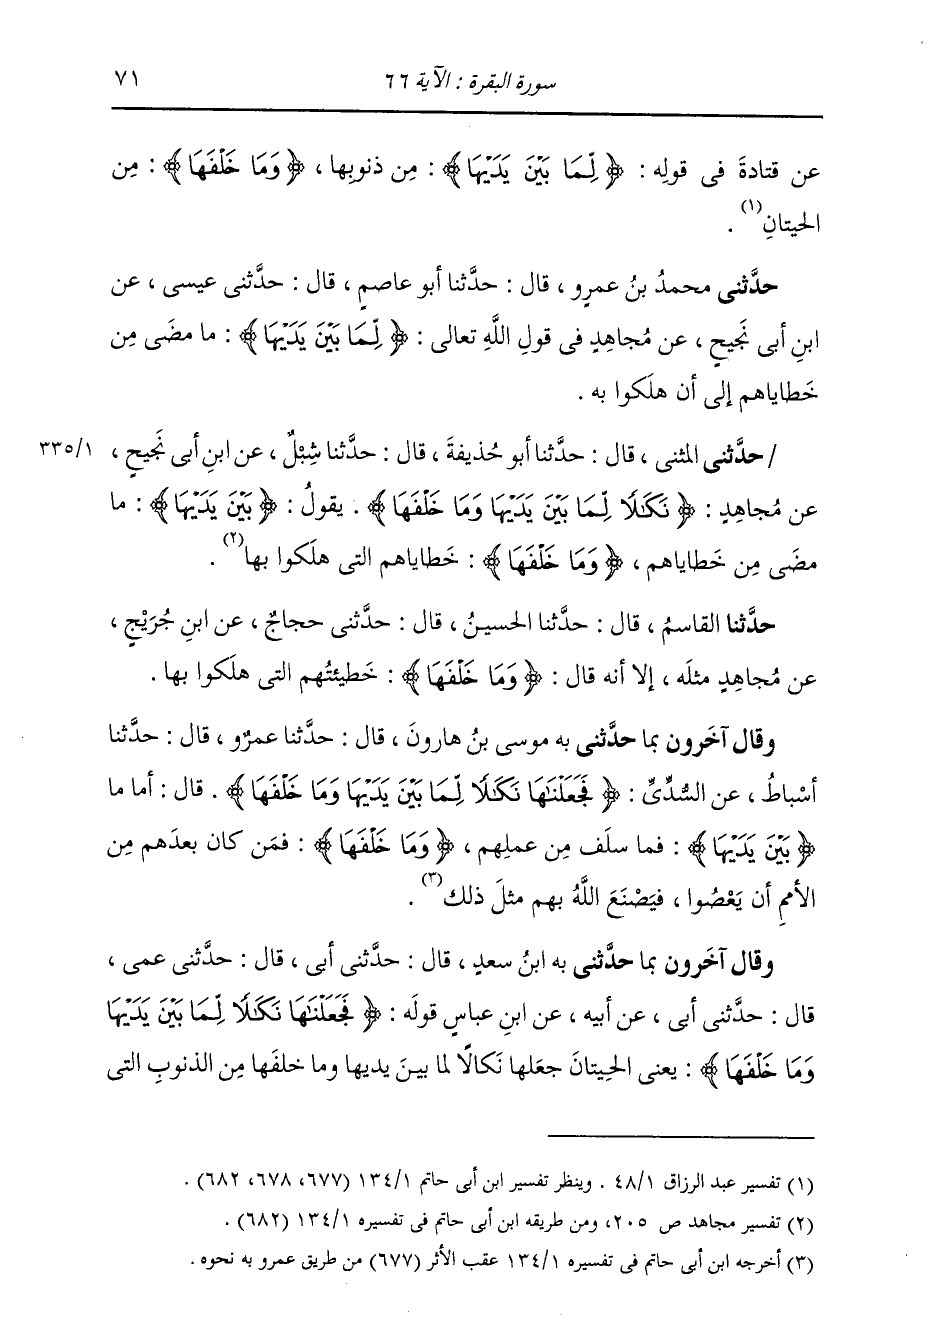 سورة البقرة : الآية ٦٦ ٧١
عن قتادةَ فى قولِه : ﴿ لِّمَا بَيْنَ يَدَيْهَا ﴾ : مِن ذنوبِها ، ﴿ وَمَا خَلْفَهَا ﴾ : مِن
الحيتانِ(١) .
حدَّثنى محمدُ بنُ عمرٍو ، قال : حدَّثنا أبو عاصمٍ ، قال : حدَّثنى عيسى ، عن
ابنِ أبى نَجيحٍ ، عن مُجاهِدٍ فى قولِ اللَّهِ تعالى : ﴿ لِّمَا بَيْنَ يَدَيْهَا ﴾ : ما مضَى مِن
خَطاياهم إلى أن هلَكوا به .
/ حدَّثنى المثنى ، قال : حدَّثنا أبو حُذيفةَ ، قال : حدَّثنا شِبْلٌ ، عن ابنِ أبى نَجيحٍ ، ٣٣٥/١
عن مُجاهِدٍ : ﴿ نَكَٰلًا لِّمَا بَيْنَ يَدَيْهَا وَمَا خَلْفَهَا ﴾ . يقولُ : ﴿ بَيْنَ يَدَيْهَا ﴾ : ما
مضَى مِن خَطاياهم ، ﴿ وَمَا خَلْفَهَا ﴾ : خَطاياهم التى هلَكوا بها(٢) .
حدَّثنا القاسمُ ، قال : حدَّثنا الحسينُ ، قال : حدَّثنى حجاجٌ ، عن ابنِ جُرَيْجٍ ،
عن مُجاهِدٍ مثلَه ، إلا أنه قال : ﴿ وَمَا خَلْفَهَا ﴾ : خَطيئتُهم التى هلَكوا بها .
وقال آخَرون بما حدَّثنى به موسى بنُ هارونَ ، قال : حدَّثنا عمرٌو ، قال : حدَّثنا
أسْباطُ ، عن السُّدِّىِّ : ﴿ فَجَعَلْنَٰهَا نَكَٰلًا لِّمَا بَيْنَ يَدَيْهَا وَمَا خَلْفَهَا ﴾ . قال : أما ما
﴿ بَيْنَ يَدَيْهَا ﴾ : فما سلَف مِن عملِهم ، ﴿ وَمَا خَلْفَهَا ﴾ : فمَن كان بعدَهم مِن
الأممِ أن يَعْصُوا ، فيَصْنَعَ اللَّهُ بهم مثلَ ذلك(٣) .
وقال آخَرون بما حدَّثنى به ابنُ سعدٍ ، قال : حدَّثنى أبى ، قال : حدَّثنى عمى ،
قال : حدَّثنى أبى ، عن أبيه ، عن ابنِ عباسٍ قولَه : ﴿ فَجَعَلْنَٰهَا نَكَٰلًا لِّمَا بَيْنَ يَدَيْهَا
وَمَا خَلْفَهَا ﴾ : يعنى الحِيتانَ جعَلها نَكالًا لما بينَ يديها وما خلفَها مِن الذنوبِ التى
(١) تفسير عبد الرزاق ٤٨/١ . وينظر تفسير ابن أبى حاتم ١٣٤/١ (٦٧٧، ٦٧٨، ٦٨٢) .
(٢) تفسير مجاهد ص ٢٠٥، ومن طريقه ابن أبى حاتم فى تفسيره ١٣٤/١ (٦٨٢) .
(٣) أخرجه ابن أبى حاتم فى تفسيره ١٣٤/١ عقب الأثر (٦٧٧) من طريق عمرو به نحوه .